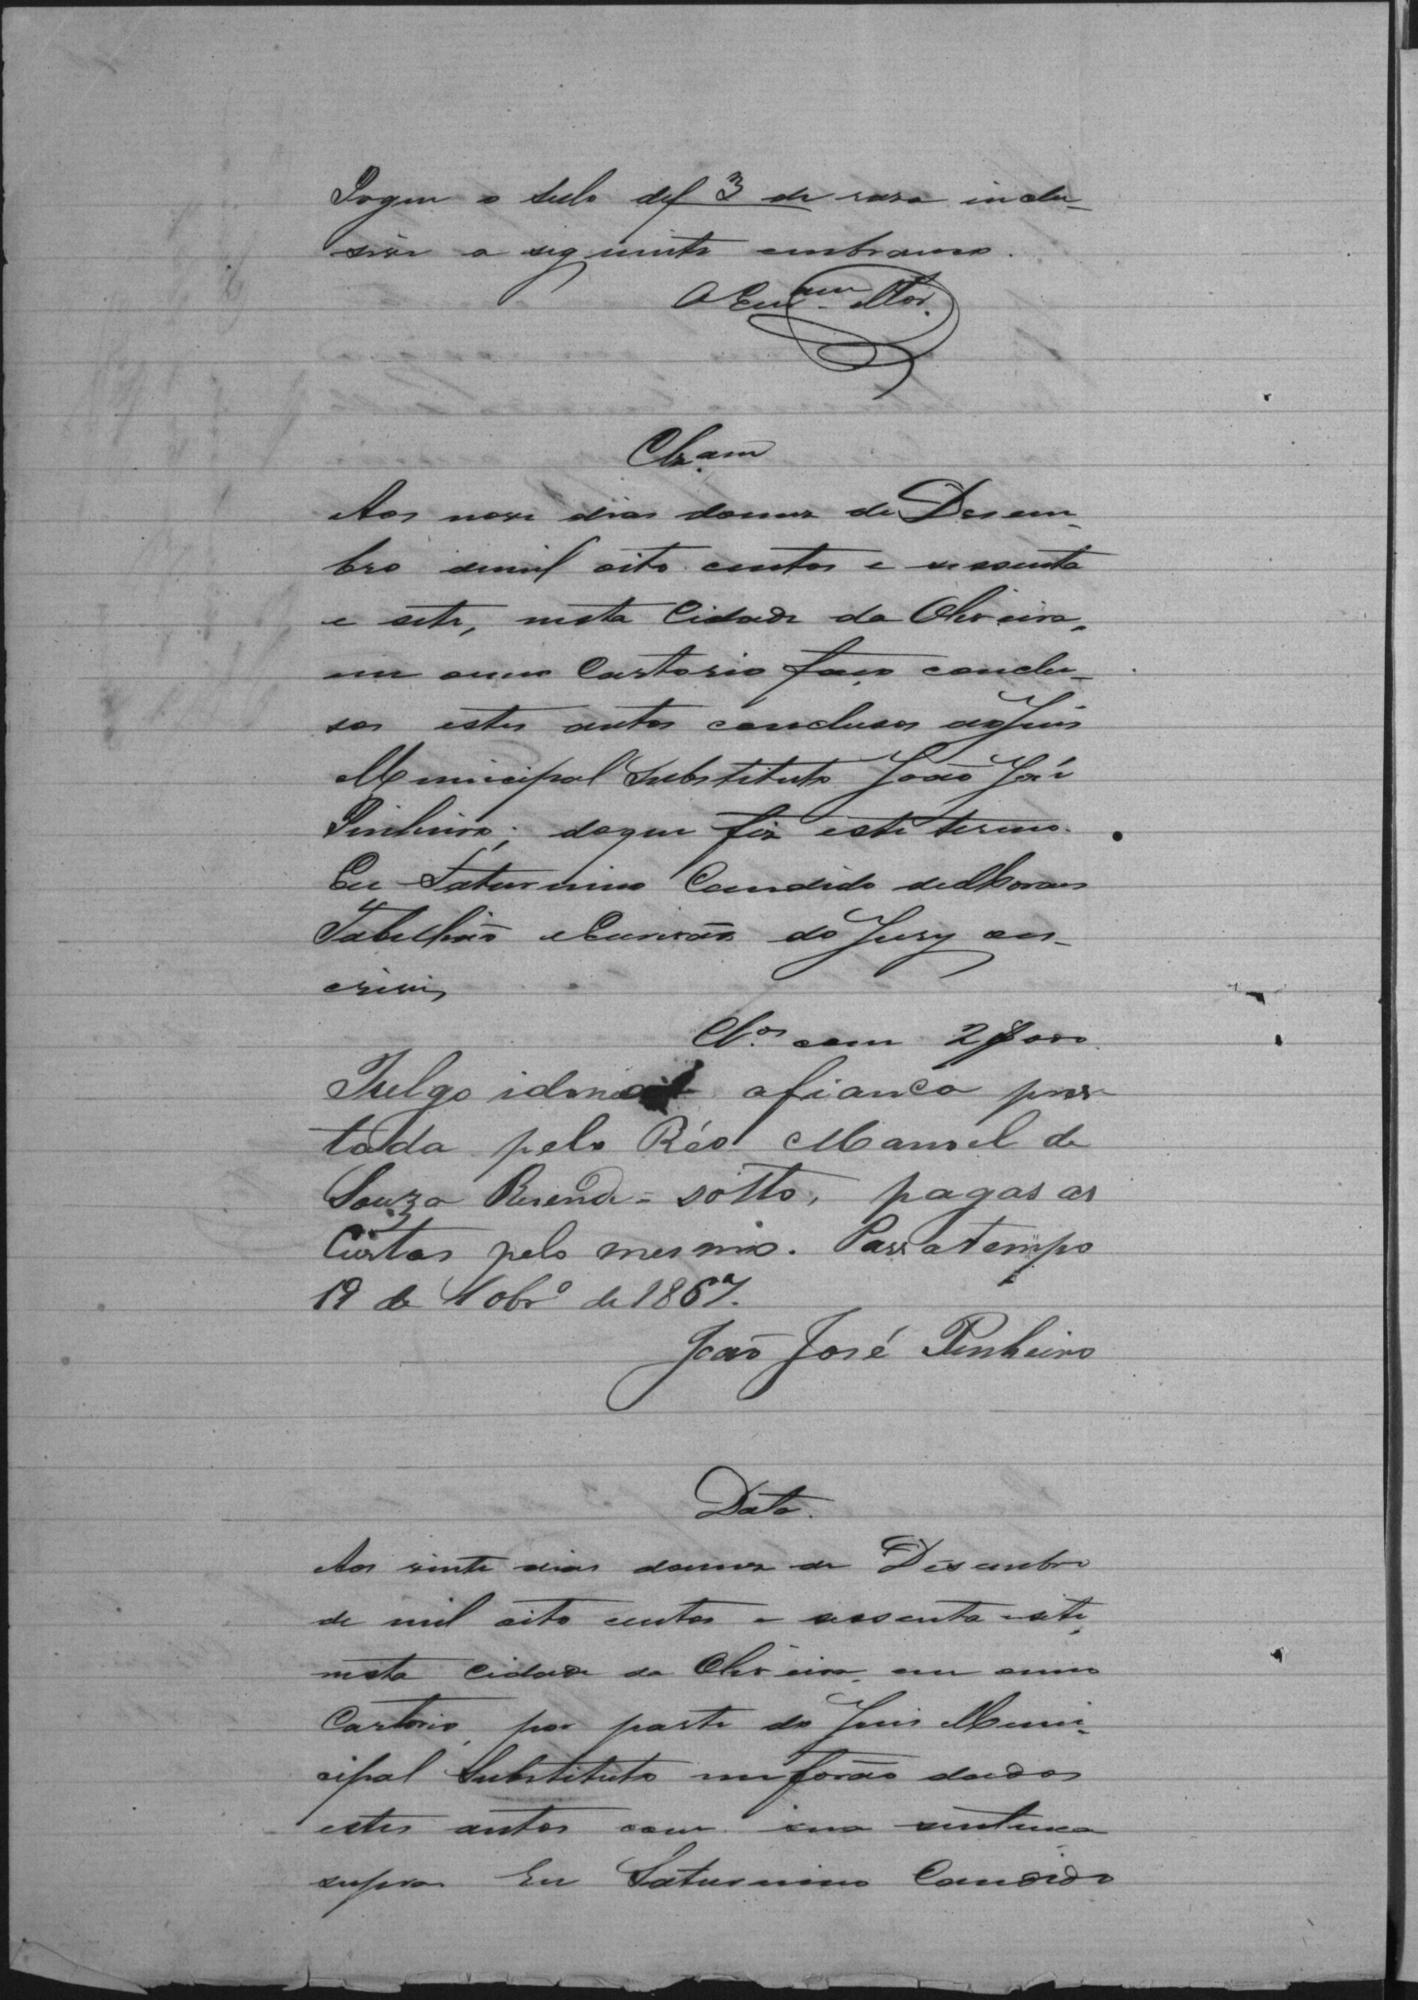 Pagou o sello de f 3 de raza inclu-
sive a seguinte embranco.
O Escr.am Mor.
Clz.am
Aos nove dias domez de Desem-
bro demil oito centos e sessenta
e sete, nesta Cidade da Oliveira,
em meu Cartorio faço conclu-
sos estes autos conclusos ao Juis
Municipal Substituto João José
Pinheiro; doque fiz este termo.
Eu Saturnino Candido de Moraes
Tabellião e Escrivão do Jury es-
crivi,
Cl.os com 2$000
Julgo idonea afiança pres
tada pelo Réo Manoel de
Souza Resende = sotto, pagas as
Custas pelo mesmo. Passatempo
19 de Nobr.o de 1867.
João José Pinheiro
Data.
Aos vinte dias domez de Desembro
de mil oito centos e sessenta e sete,
nesta Cidade da Oliveira, em meu
Cartorio, por parte do Juis Muni-
cipal Substituto me forão dados
estes autos com sua sentença
supra. Eu Saturnino Candido